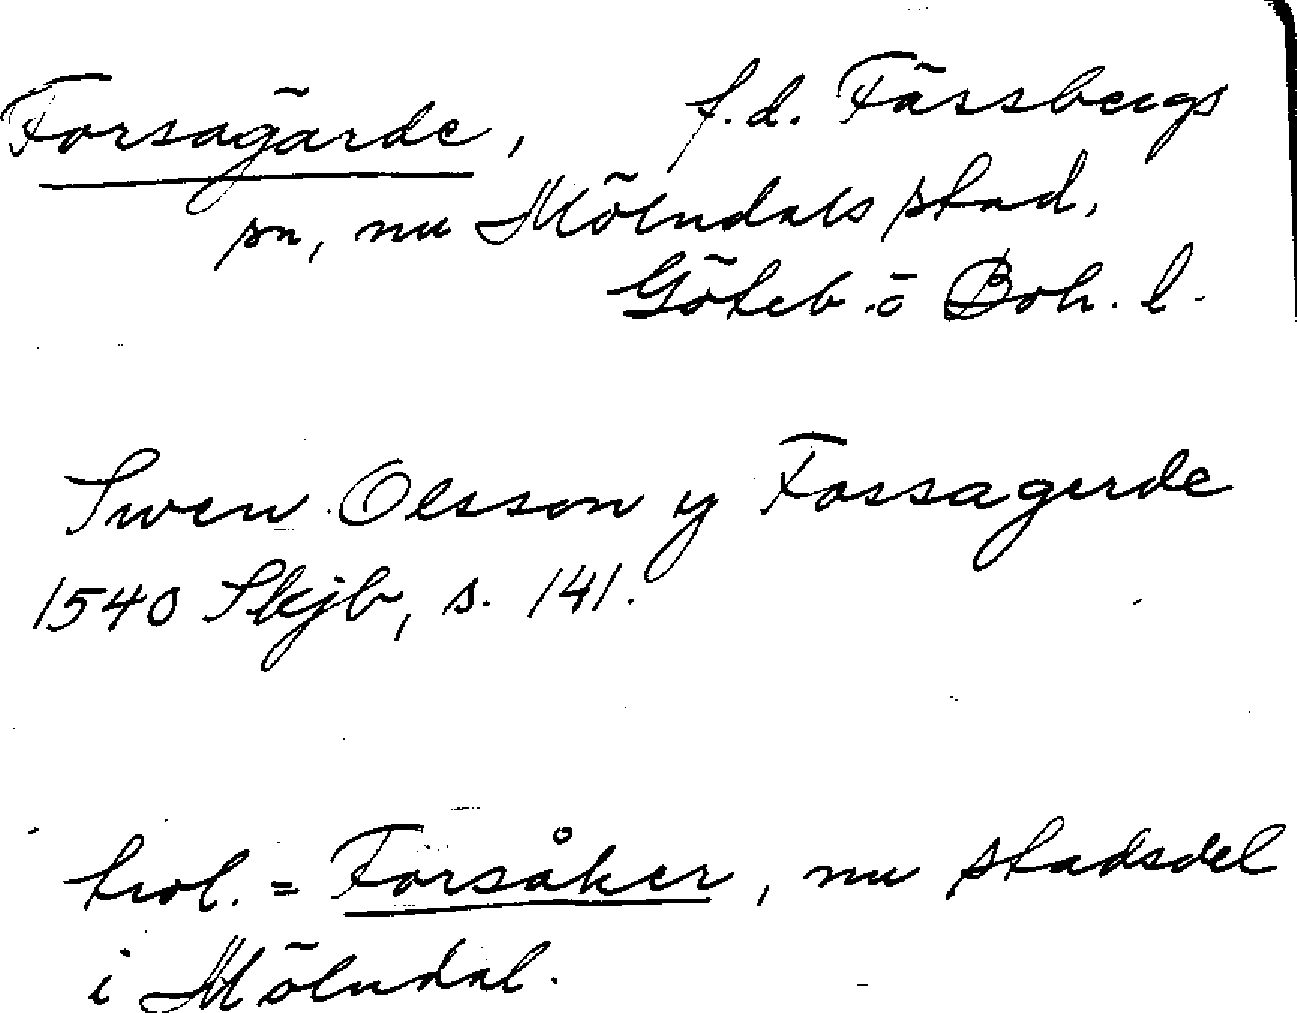 Forsagärde, f.d. Fässbergs
sn, nu Mölndals stad,
Göteb. o Boh. l.
Swen Olsson y Fossagerde
1540 Skjb, s. 141.
trol. = Forsåker, nu stadsdel
i Mölndal.